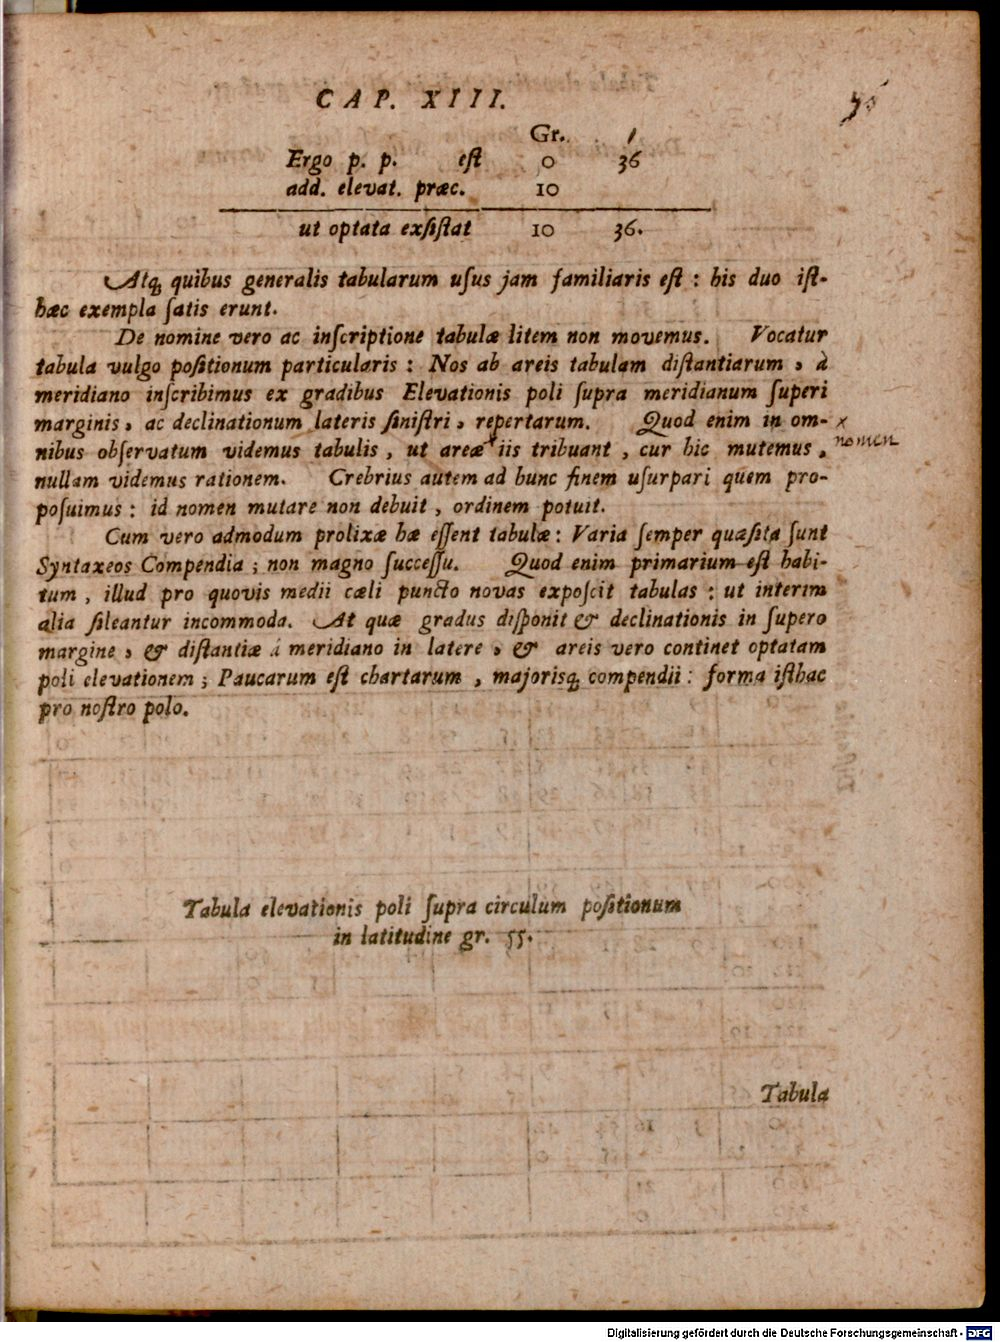 CAP. XIII.
Gr. ′
Ergo p. p. eſt 0 36
add. elevat. præc. 10
ut optata exſiſtat 10 36.
Atq; quibus generalis tabularum uſus jam familiaris eſt : his duo iſt-
hæc exempla ſatis erunt.
De nomine vero ac inſcriptione tabulæ litem non movemus. Vocatur
tabula vulgo poſitionum particularis : Nos ab areis tabulam diſtantiarum , à
meridiano inſcribimus ex gradibus Elevationis poli ſupra meridianum ſuperi
marginis , ac declinationum lateris ſiniſtri , repertarum. Quod enim in om- x
nibus obſervatum videmus tabulis , ut areæ x iis tribuant , cur hic mutemus , nomen
nullam videmus rationem. Crebrius autem ad hunc finem uſurpari quem pro-
poſuimus : id nomen mutare non debuit , ordinem potuit.
Cum vero admodum prolixæ hæ eſſent tabulæ : Varia ſemper quæſita ſunt
Syntaxeos Compendia ; non magno ſucceſſu. Quod enim primarium eſt habi-
tum , illud pro quovis medii cæli puncto novas expoſcit tabulas : ut interim
alia ſileantur incommoda. At quæ gradus diſponit & declinationis in ſupero
margine , & diſtantiæ á meridiano in latere , & areis vero continet optatam
poli elevationem ; Paucarum eſt chartarum , majorisq; compendii : forma iſthæc
pro noſtro polo.
Tabula elevationis poli ſupra circulum poſitionum
in latitudine gr. 55.
Tabula
Digitalisierung gefördert durch die Deutsche Forschungsgemeinschaft - DFG